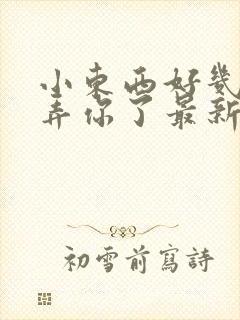 小東西好幾
弄你了最新
初雪前寫詩